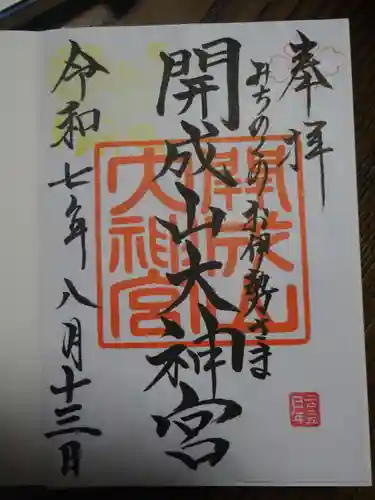 奉拝
みちのくのお伊勢さま
開成山大神宮
令和七年八月十三日
開成山
大神宮
二〇二五
巳年